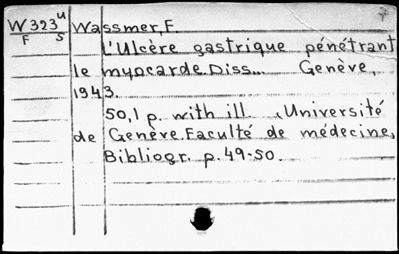 W323u Wassmer, F.
F s l'Ulcère gastrique pénétrant
le myocarde. Diss... Genève,
1943.
50,1 p. with ill. (Université
de Genève. Faculté de médecine,
Bibliogr. p. 49-50.